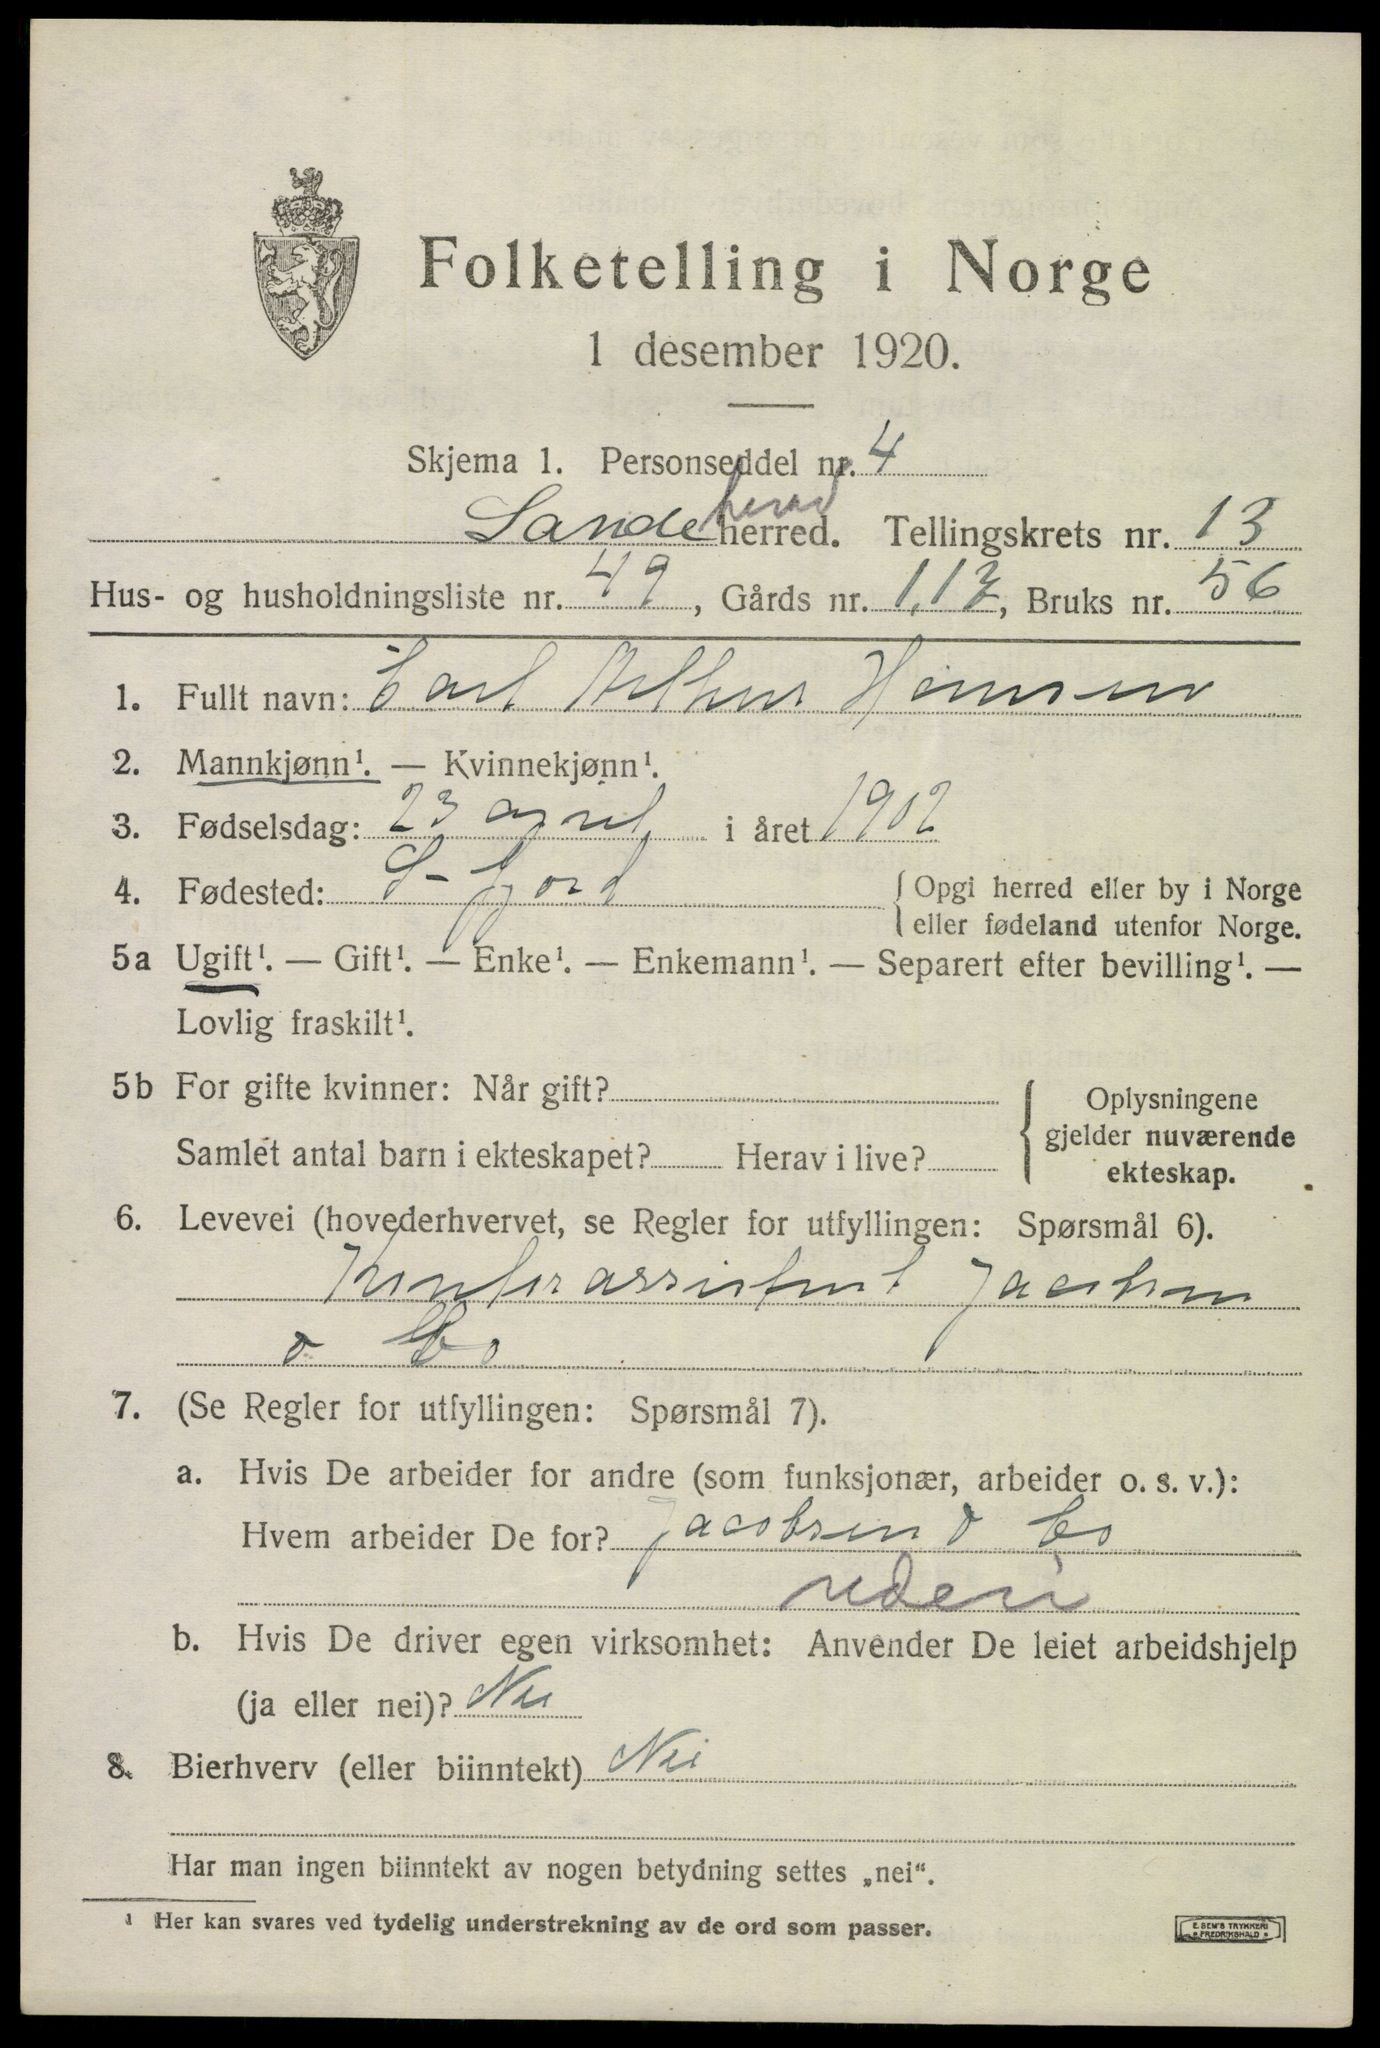 Folketelling i Norge
1 desember 1920.
Skjema 1. Personseddel nr. 4
herad
Sande herred. Tellingskrets nr. 13
Hus- og husholdningsliste nr. 49, Gårds nr. 113, Bruks nr. 56
1. Fullt navn: Carl Arthur Hansen
2. Mannkjønn¹. — Kvinnekjønn¹.
3. Fødselsdag: 23 april i året 1902
4. Fødested: S-fjord { Opgi herred eller by i Norge
eller fødeland utenfor Norge.
5a Ugift¹. — Gift¹. — Enke¹. — Enkemann¹. — Separert efter bevilling¹. —
Lovlig fraskilt¹.
5b For gifte kvinner: Når gift?
Samlet antal barn i ekteskapet? Herav i live?
Oplysningene
gjelder nuværende
ekteskap.
6. Levevei (hovederhvervet, se Regler for utfyllingen: Spørsmål 6).
Kontorassistent Jacobsen
o Co
7. (Se Regler for utfyllingen: Spørsmål 7).
a. Hvis De arbeider for andre (som funksjonær, arbeider o. s. v.):
Hvem arbeider De for? Jacobsen o Co
rederi
b. Hvis De driver egen virksomhet: Anvender De leiet arbeidshjelp
(ja eller nei)? Nei
8. Bierhverv (eller biinntekt) Nei
Har man ingen biinntekt av nogen betydning settes „nei“.
¹ Her kan svares ved tydelig understrekning av de ord som passer.
E. SEM'S TRYKKERI
FREDRIKSHALD